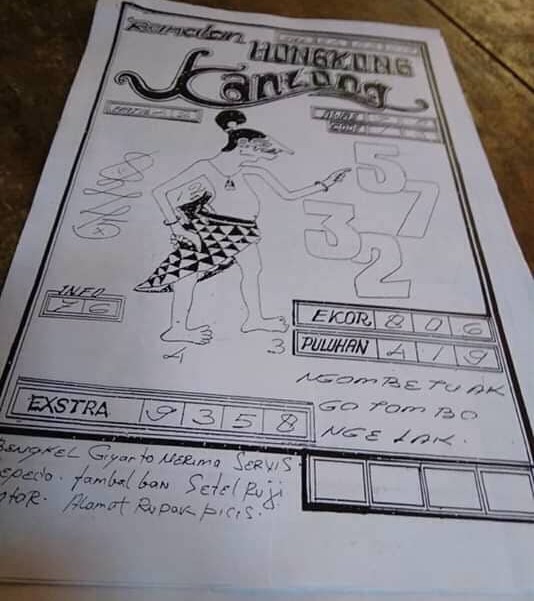 Ramalan
HONGKONG
Kantong
CODE
5
7
3
2
INFO
7 6
4
3
EKOR 8 0 6
PULUHAN 4 1 9
NGOMBE TUAK
GO TOMBO
NGELAK.
EXSTRA 9 3 5 8
BENGKEL Giyarto MERIMA SERVIS
sepeda. tambal ban Setel Ruji
Alamat Rupak picis.